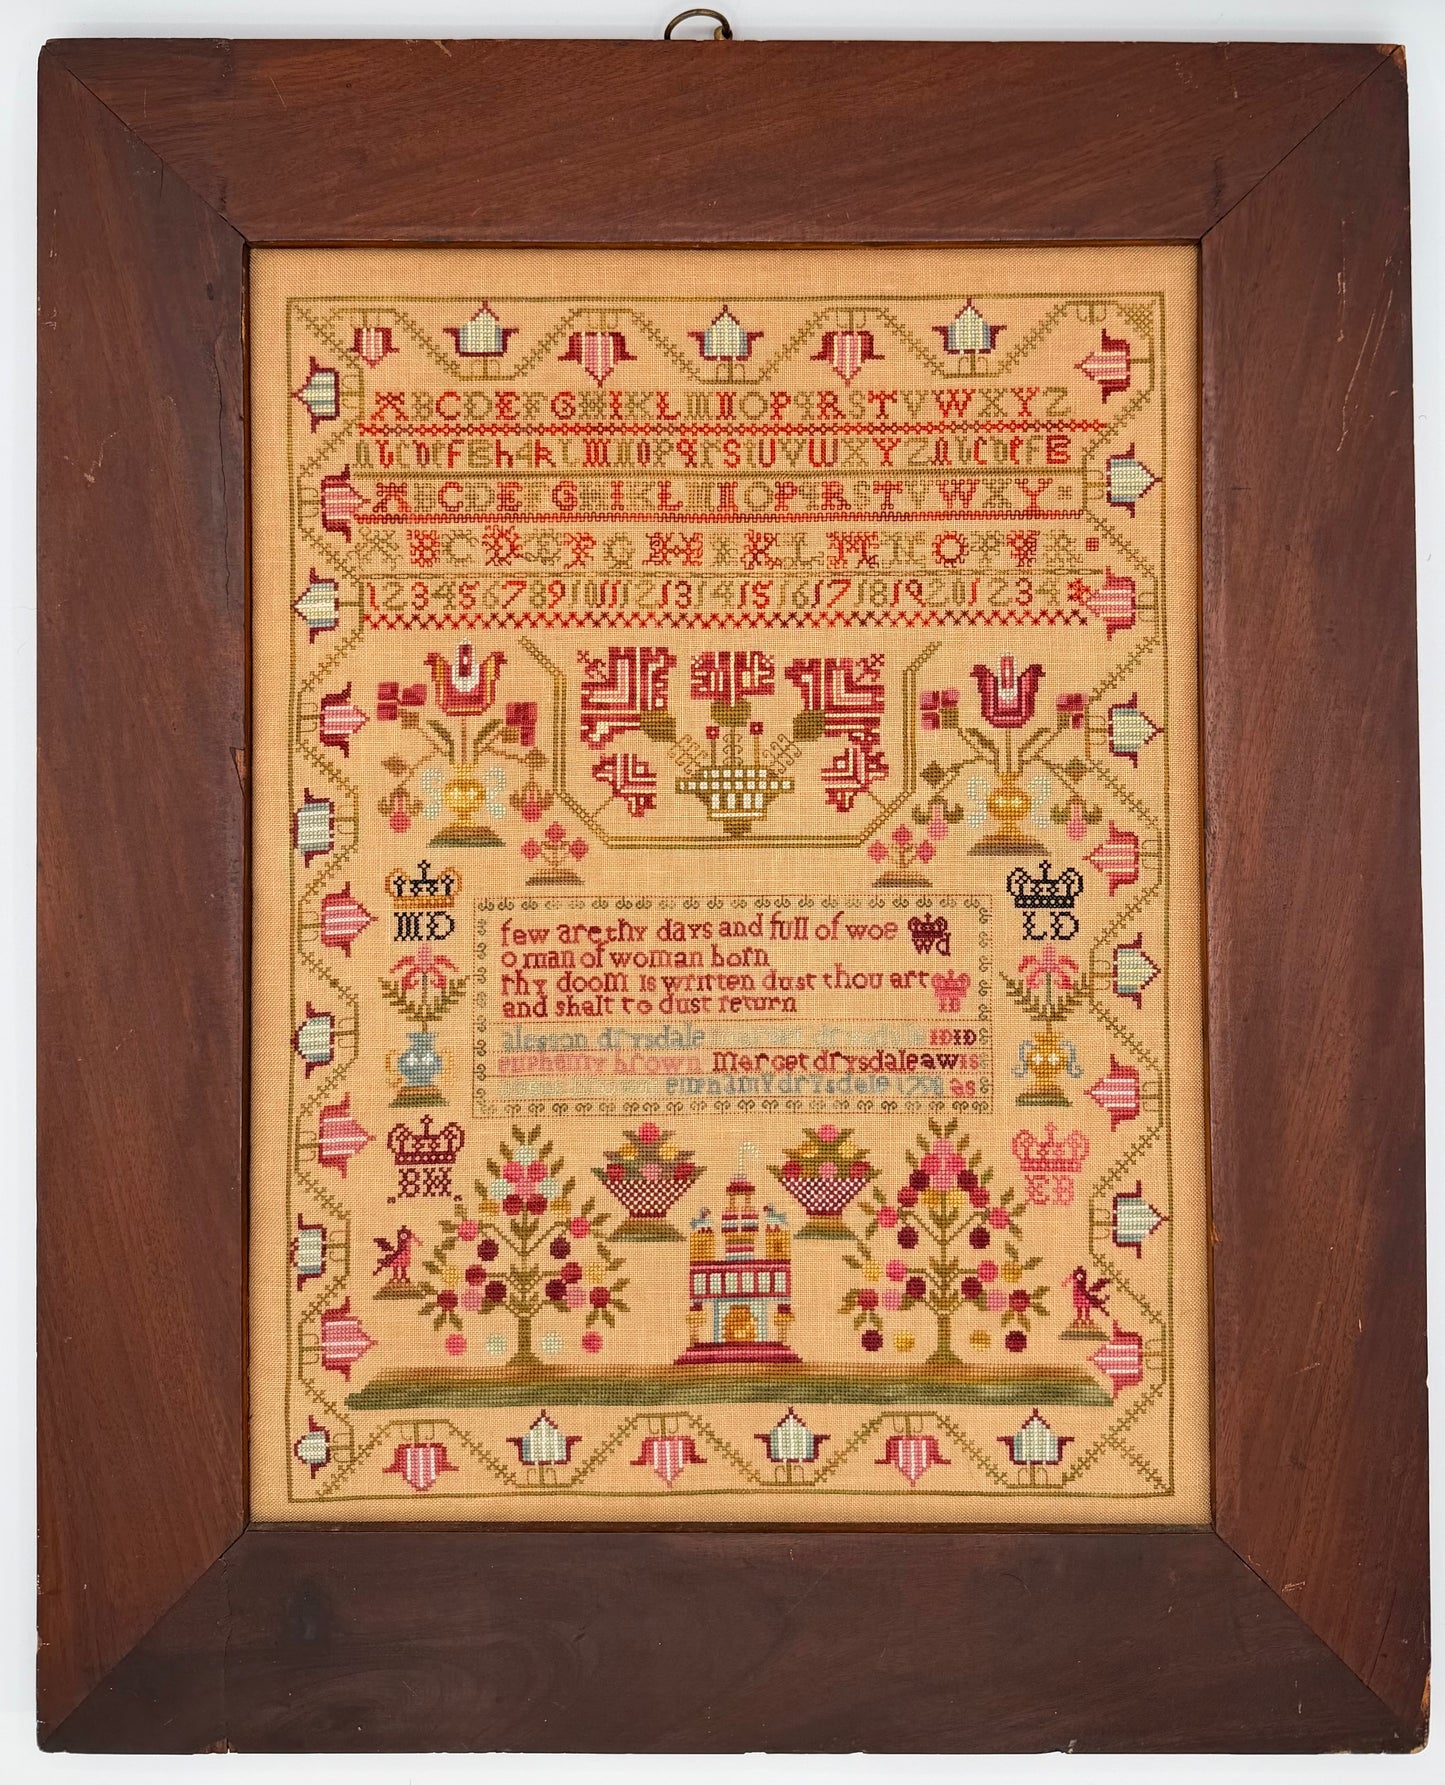 A B C D E F G H I K L M N O P q R S T V W X Y Z
a b c d e f g h 4 k l m n o p q r s t U V W X Y Z a b c d e f g
A B C D E F G H I K L M N O P q R S T V W X Y
A B C D E F G H I K L M N O P q R
1 2 3 4 5 6 7 8 9 10 11 12 13 14 15 16 17 18 19 20 1 2 3 4
MD
LD
few are thy days and full of woe WD
o man of woman born
thy doom is written dust thou art IB
and shalt to dust return
aleson drysdale marget drysdale ID ID
euphemy brown Marget drysdale aw is
euphamy drysdale 1798 as
BH
EB